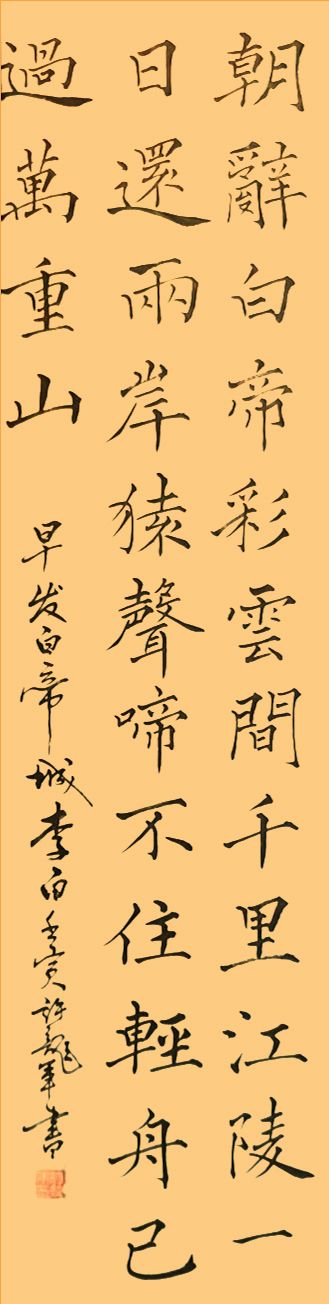 朝辭白帝彩雲間千里江陵一
日還兩岸猿聲啼不住輕舟已
過萬重山
早发白帝城李白壬寅許龍軍書